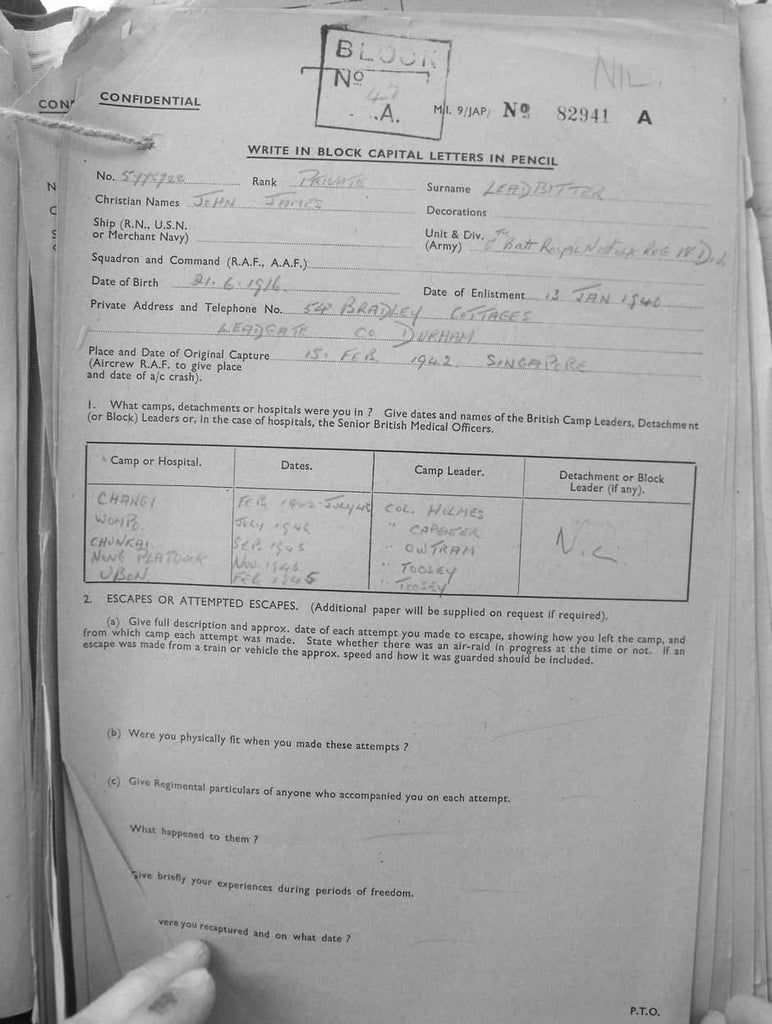 BLOCK
Nº
47
.A.
NIL.
CON
CONFIDENTIAL
M.I. 9/JAP/ Nº 82941 A
WRITE IN BLOCK CAPITAL LETTERS IN PENCIL
No. Rank PRIVATE Surname LEADBITTER
Christian Names JOHN JAMES Decorations
Ship (R.N., U.S.N. or Merchant Navy)
Unit & Div. (Army) Batt Royal Norfolk Reg 18 Div.
Squadron and Command (R.A.F., A.A.F.)
Date of Birth 21.6.1916. Date of Enlistment 13 JAN 1940
Private Address and Telephone No. 54 BRADLEY COTTAGES
LEADGATE CO. DURHAM
Place and Date of Original Capture 15. FEB 1942 SINGAPORE
(Aircrew R.A.F. to give place
and date of a/c crash).
1. What camps, detachments or hospitals were you in ? Give dates and names of the British Camp Leaders, Detachment
(or Block) Leaders or, in the case of hospitals, the Senior British Medical Officers.
Camp or Hospital. Dates. Camp Leader. Detachment or Block Leader (if any).
CHANGI FEB 1942-JULY 43 COL. HOLMES
WOMPO. JULY 1943 " CARPENTER
CHUNKAI SEP. 1943 " OWTRAM
NONG PLADUCK NOV. 1943 " TOOSEY
UBON FEB 1945 " TOOSEY
2. ESCAPES OR ATTEMPTED ESCAPES. (Additional paper will be supplied on request if required).
(a) Give full description and approx. date of each attempt you made to escape, showing how you left the camp, and
from which camp each attempt was made. State whether there was an air-raid in progress at the time or not. If an
escape was made from a train or vehicle the approx. speed and how it was guarded should be included.
(b) Were you physically fit when you made these attempts ?
(c) Give Regimental particulars of anyone who accompanied you on each attempt.
What happened to them ?
Give briefly your experiences during periods of freedom.
were you recaptured and on what date ?
P.T.O.